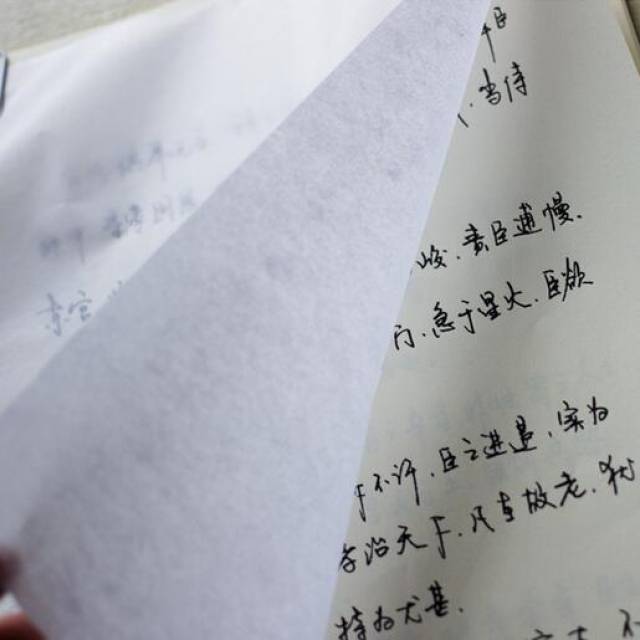 当侍
峻.责臣逋慢.
门.急于星火.臣欲
不许.臣之进退.实为
孝治天下.凡在故老.犹
特为尤甚.